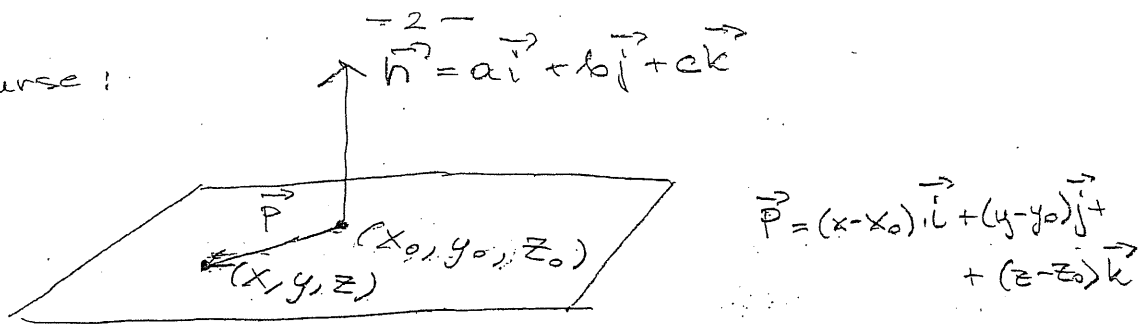 - 2 -
urse :
n⃗ = a i⃗ + b j⃗ + c k⃗
P⃗
(x₀, y₀, z₀)
(x, y, z)
P⃗ = (x-x₀).i⃗ + (y-y₀)j⃗ +
+ (z-z₀)k⃗